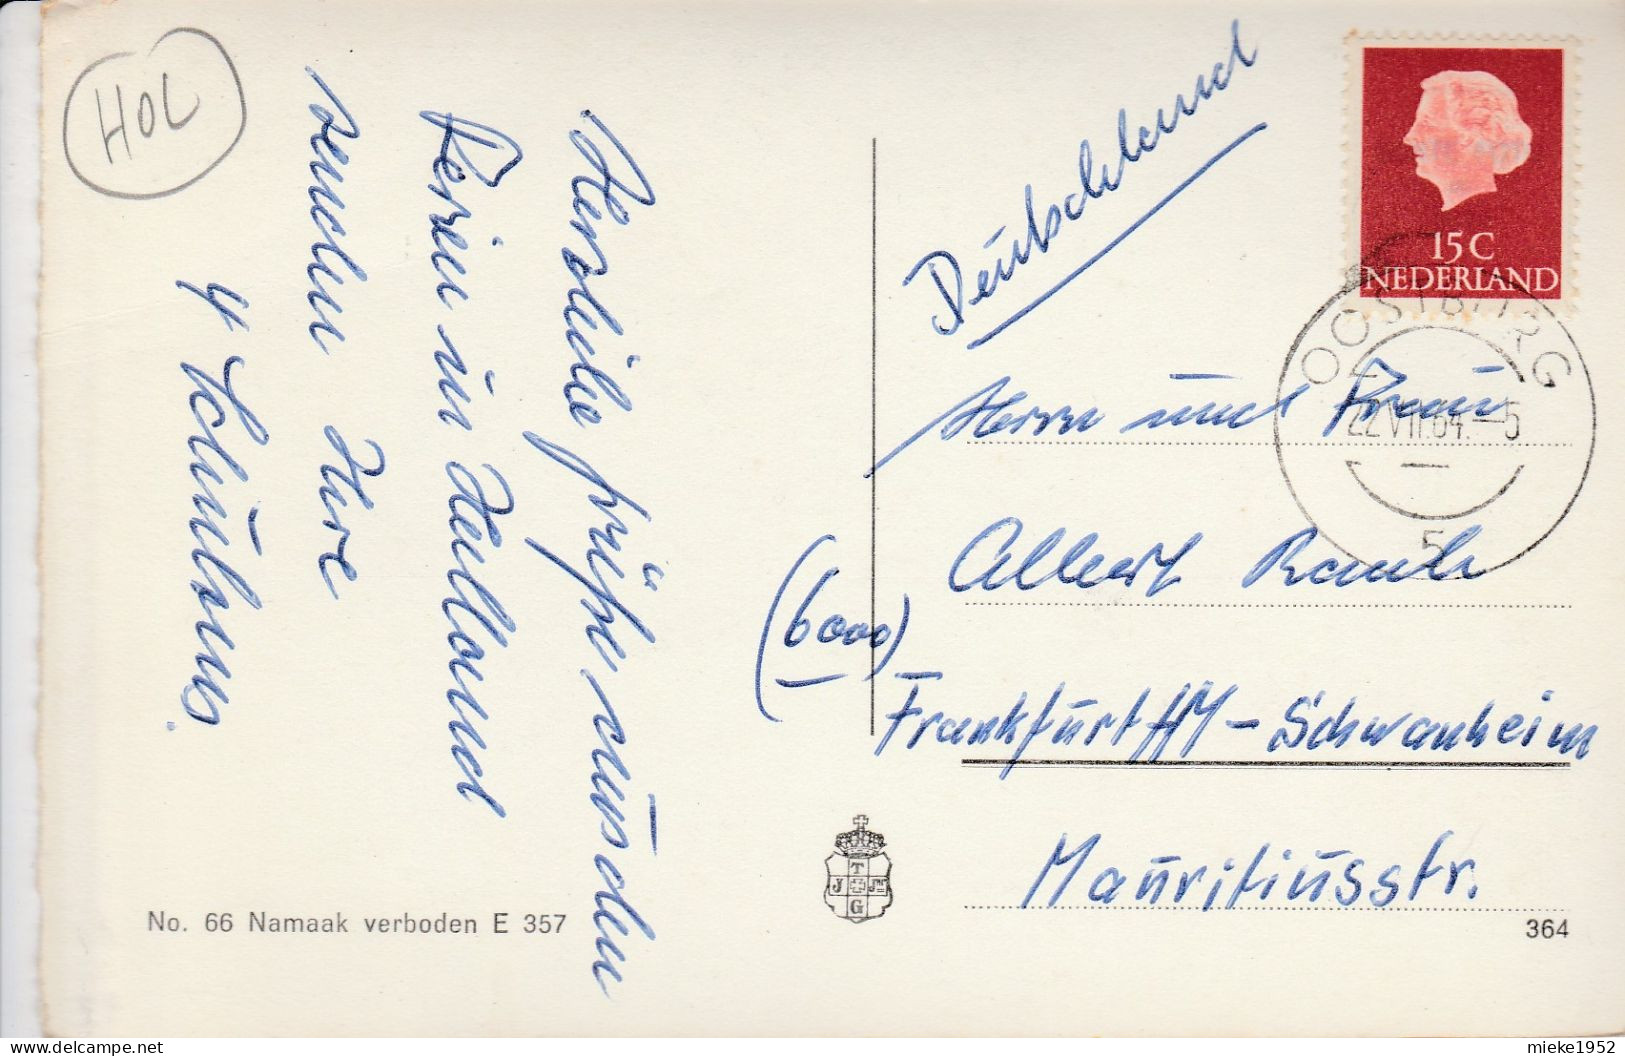 HOL
Herzliche Grüße aus den
Ferien in Holland
senden Ihre
4 Schülers
Deutschland
15 C
NEDERLAND
OOSTBURG
22.VII.64.-5
5
Herrn und Frau
Albert Rauch
(6000)
Frankfurt/M - Schwanheim
Mauritiusstr.
T
J Jzn
G
No. 66 Namaak verboden E 357
364
mieke1952